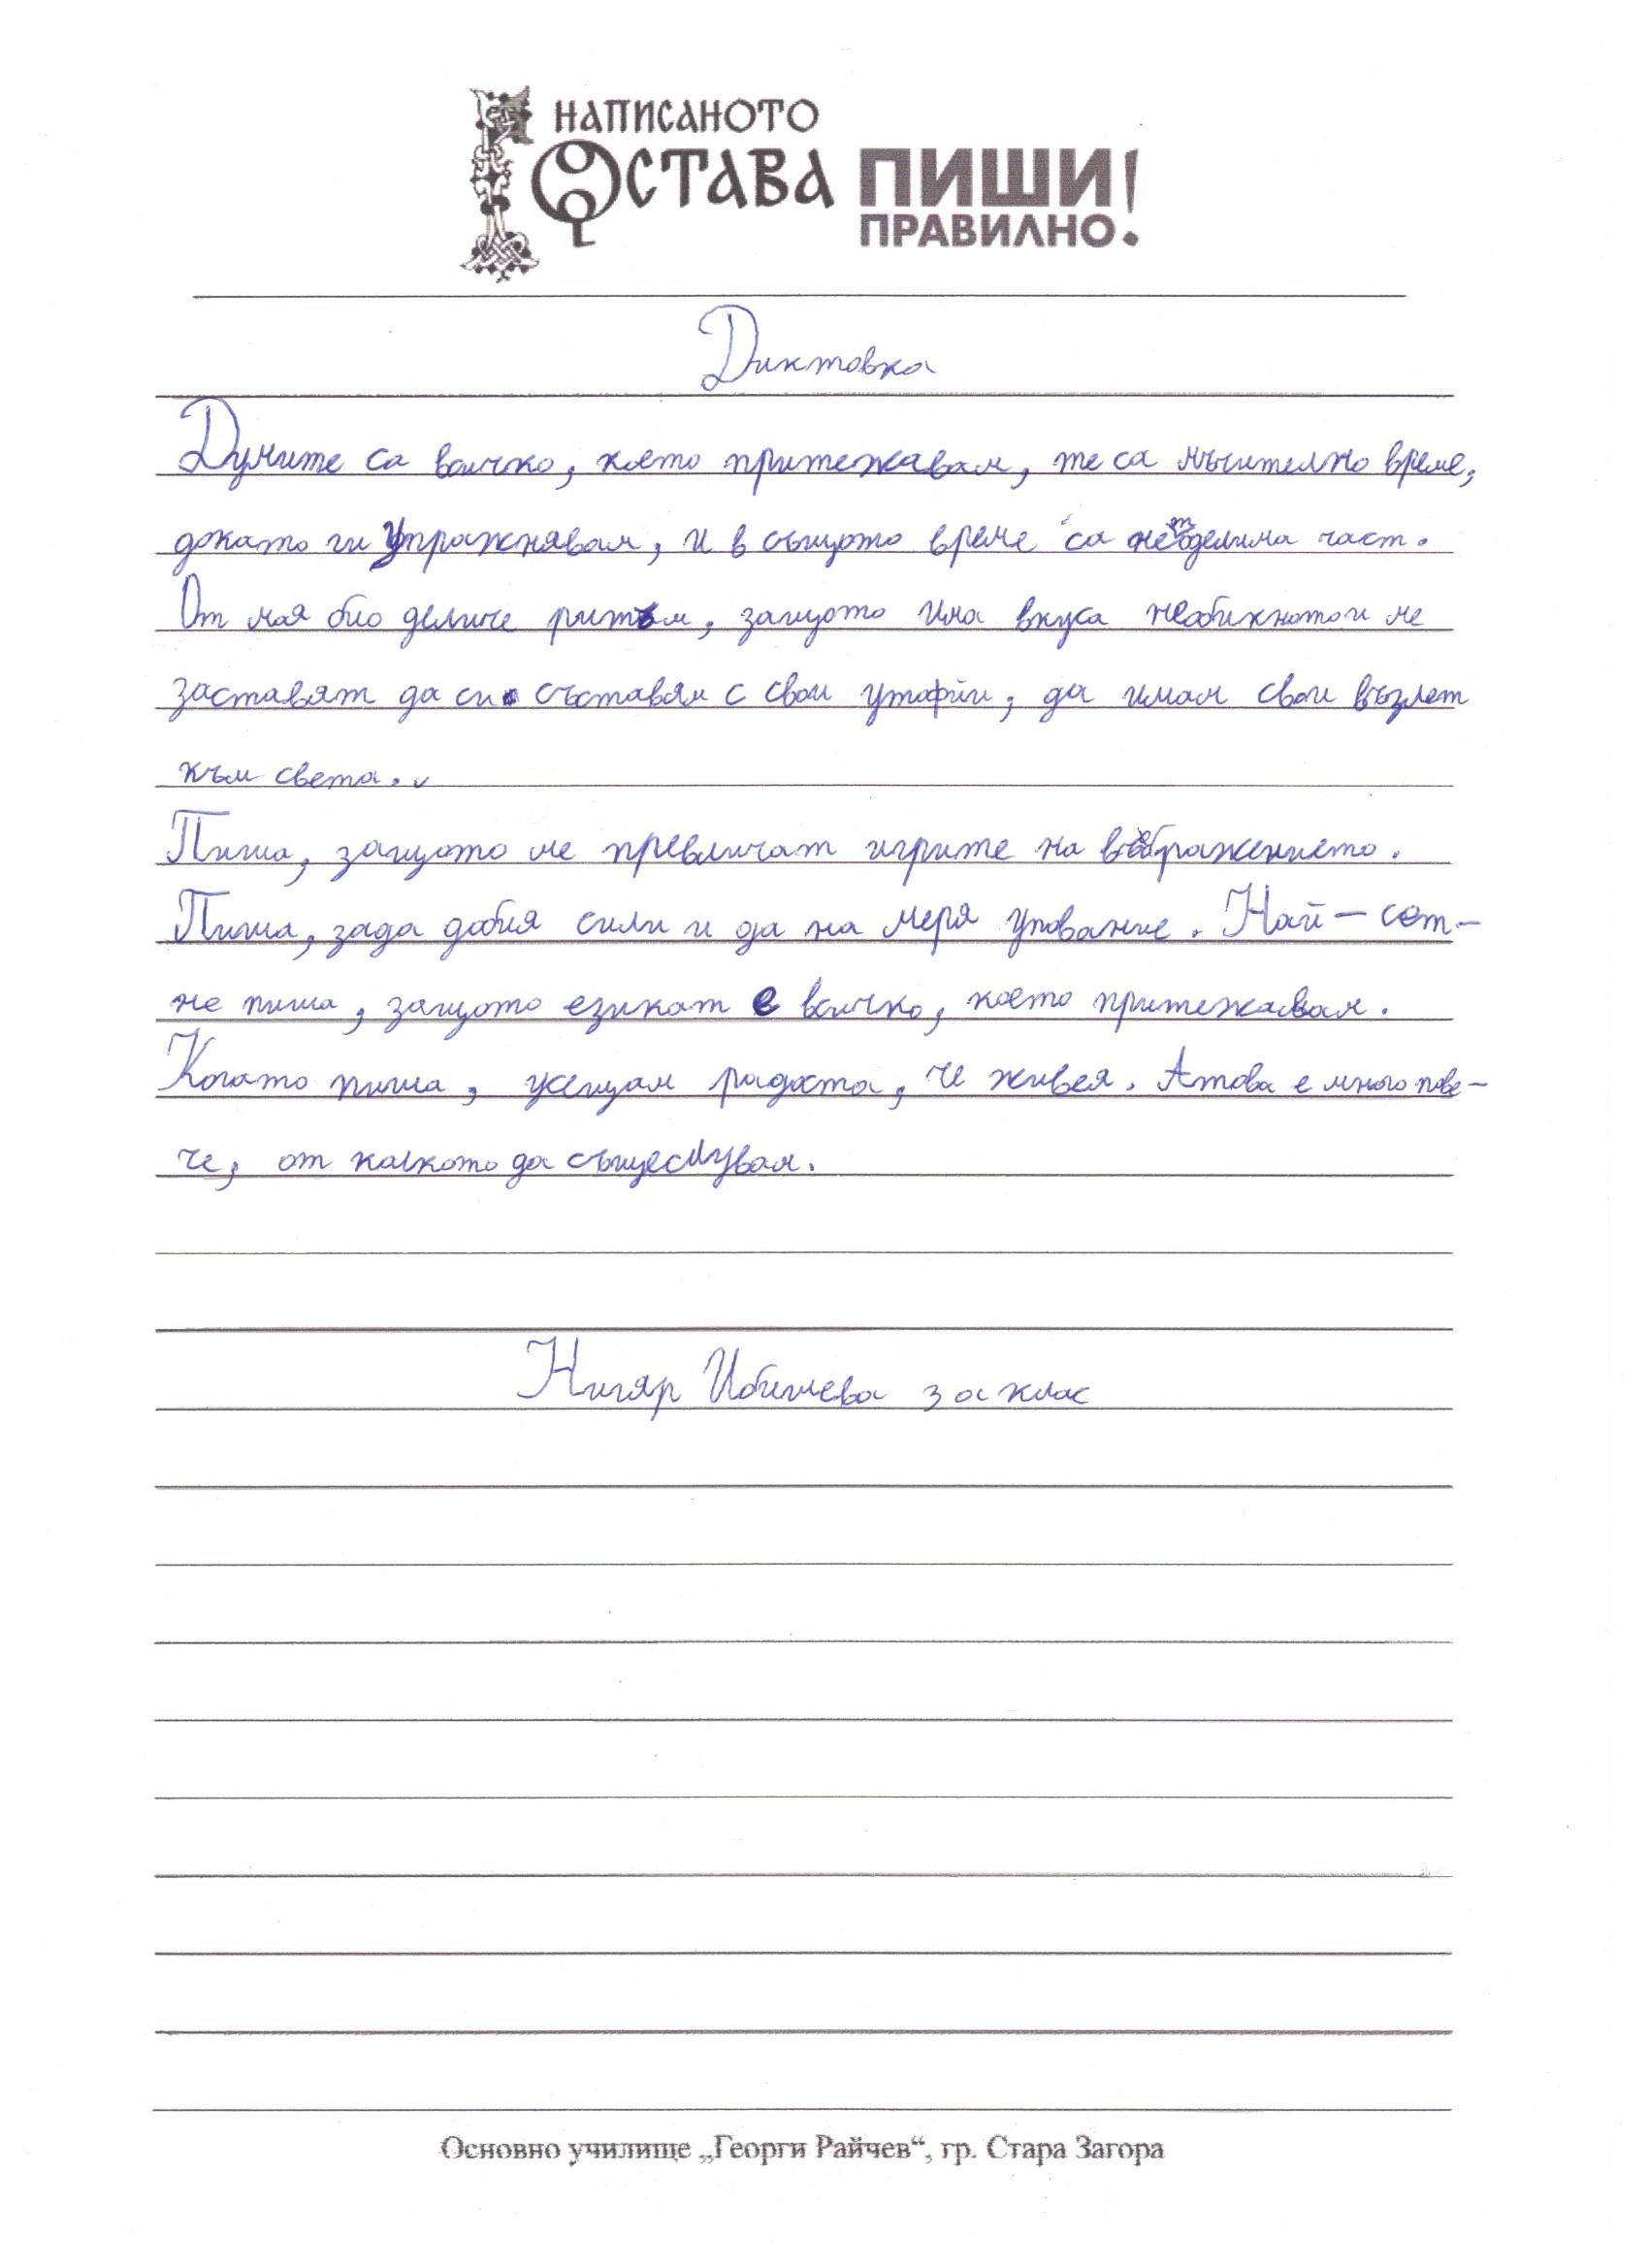 НАПИСАНОТО
ОСТАВА ПИШИ
ПРАВИЛНО!
Диктовка
Думите са всичко, което притежавам, те са мъчително време,
докато ги упражнявам, и в същото време са неотделима част.
От моя био деличе ритъм, защото има вкуса необикнотои ме
заставят да си съставям с свои утофии, да имам свои възлет
към света.
Пиша, защото ме превличат игрите на въображението.
Пиша, зада добия сили и да на меря упование. Най-сет-
не пиша, защото езикат е всичко, което притежавам.
Когато пиша, усещам радоста, че живея. Атова е много пове-
че, от колкото да съществувам.
Нигяр Ибишева 3 а клас
Основно училище „Георги Райчев“, гр. Стара Загора